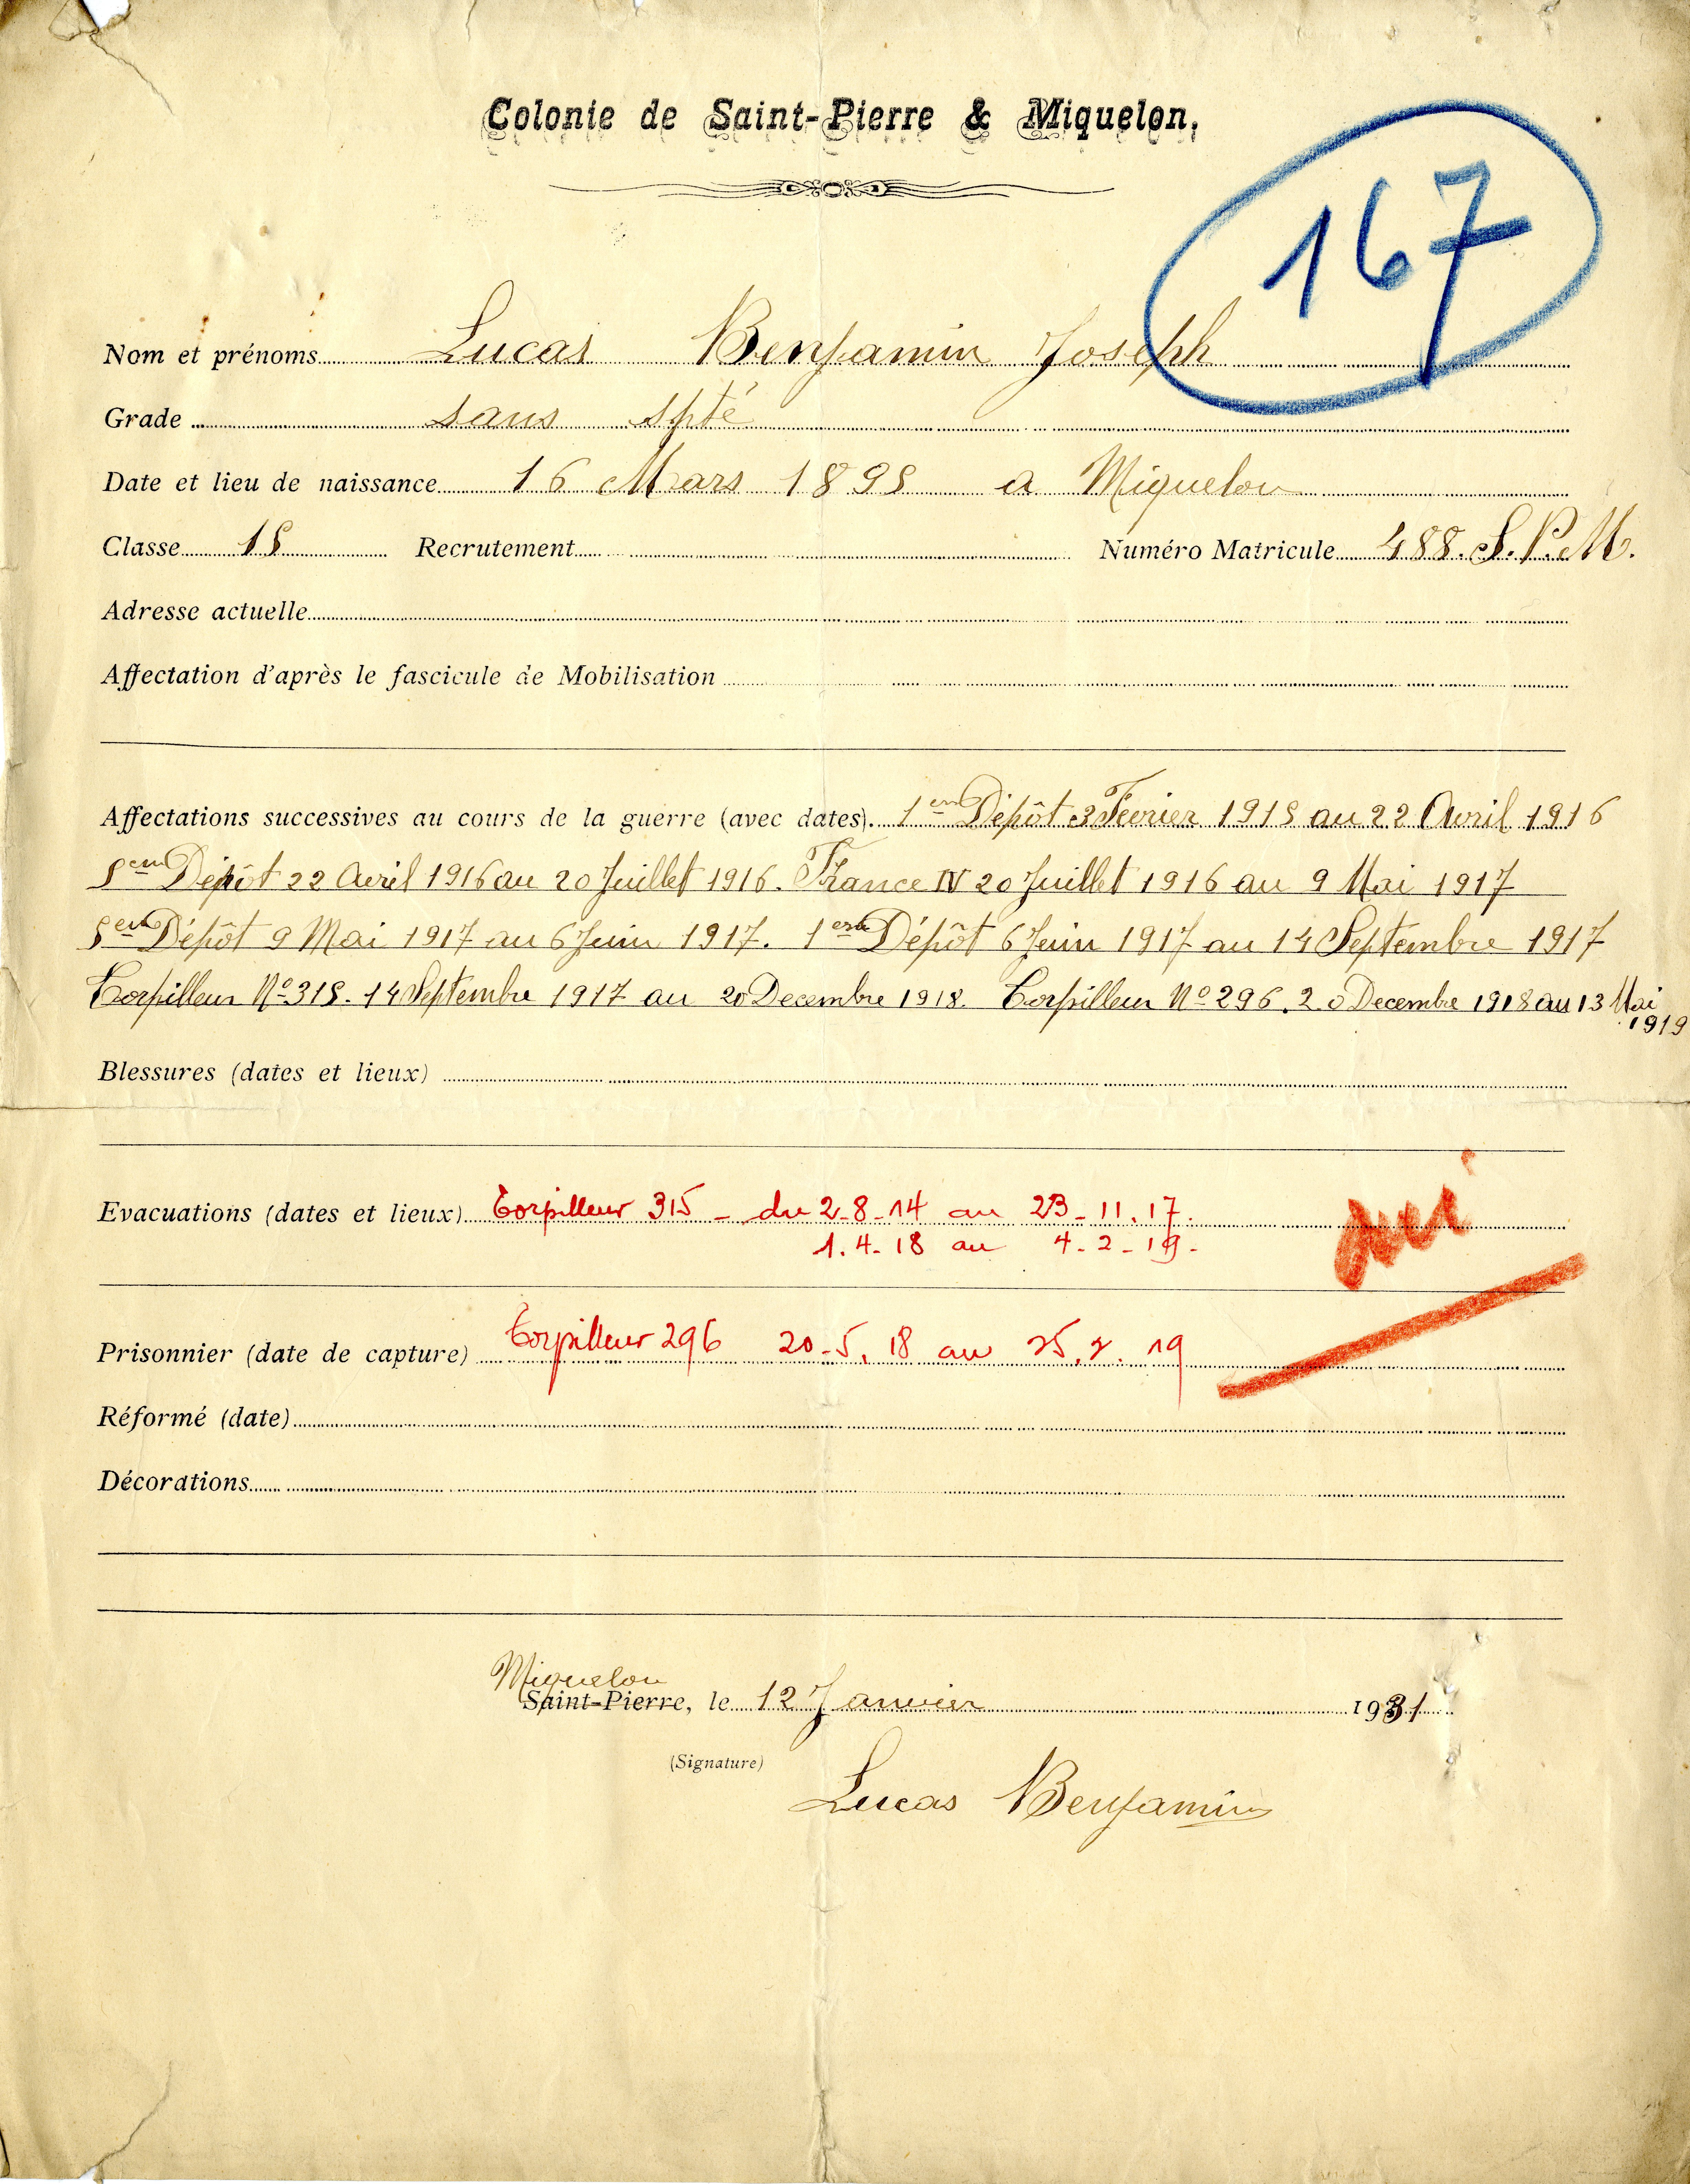 Colonie de Saint-Pierre & Miquelon.
167
Nom et prénoms Lucas Benjamin Joseph
Grade sans spté
Date et lieu de naissance 16 Mars 1895 a Miquelon
Classe 15 Recrutement Numéro Matricule 488. S. P. M.
Adresse actuelle
Affectation d'après le fascicule de Mobilisation
Affectations successives au cours de la guerre (avec dates). 1er Dépôt 3 Fevrier 1915 au 22 Avril 1916
5em Dépôt 22 Avril 1916 au 20 Juillet 1916. France IV 20 Juillet 1916 au 9 Mai 1917
5em Dépôt 9 Mai 1917 au 6 Juin 1917. 1er Dépôt 6 Juin 1917 au 14 Septembre 1917
Torpilleur No 315. 14 Septembre 1917 au 20 Decembre 1918. Torpilleur No 296. 20 Decembre 1918 au 13 Mai
1919
Blessures (dates et lieux)
Evacuations (dates et lieux) Torpilleur 315 - du 2-8-14 au 23-11.17.
1.4-18 au 4-2-19-
oui
Prisonnier (date de capture) Torpilleur 296 20-5.18 au 25.2.19
Réformé (date)
Décorations
Miquelon
Saint-Pierre, le 12 Janvier 1931
(Signature)
Lucas Benjamin